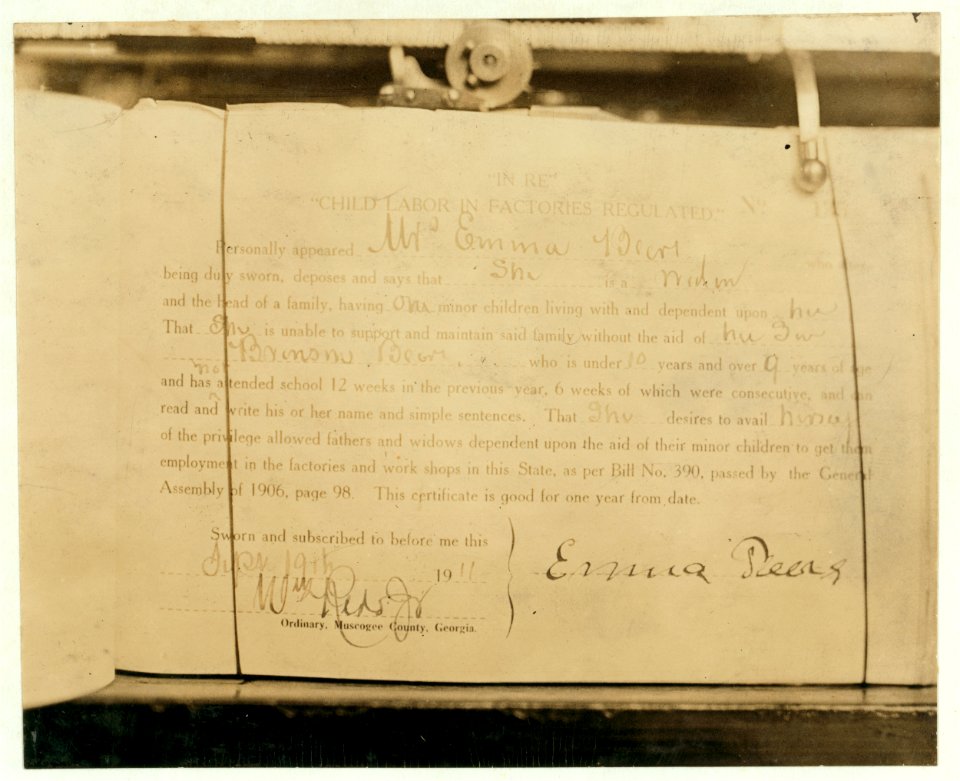 "IN RE"
"CHILD LABOR IN FACTORIES REGULATED." No
Personally appeared Mrs Emma
being duly sworn, deposes and says that She is a
and the head of a family, having One minor children living with and dependent upon her
That She is unable to support and maintain said family without the aid of her Son
who is under 10 years and over 9 years of age
not
and has attended school 12 weeks in the previous year, 6 weeks of which were consecutive, and can
read and write his or her name and simple sentences. That She desires to avail herself
of the privilege allowed fathers and widows dependent upon the aid of their minor children to get them
employment in the factories and work shops in this State, as per Bill No. 390, passed by the General
Assembly of 1906, page 98. This certificate is good for one year from date.
Sworn and subscribed to before me this
19th 1911
Emma
Wm Jr
Ordinary, Muscogee County, Georgia.